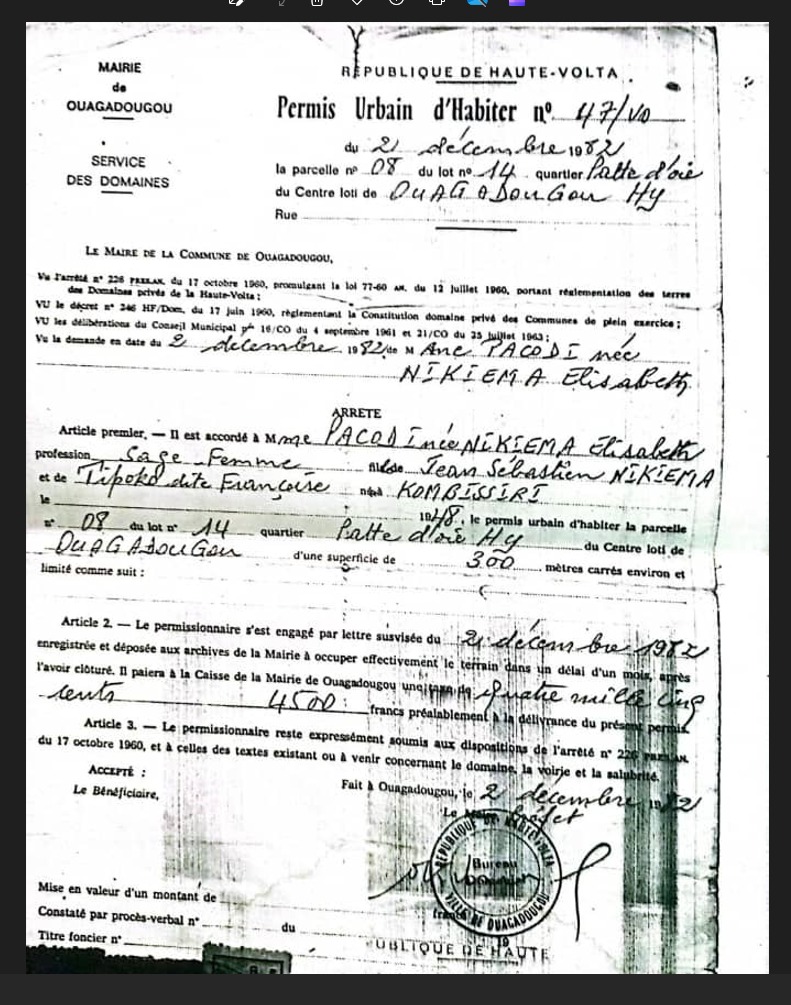 MAIRIE
de
OUAGADOUGOU
SERVICE
DES DOMAINES
RÉPUBLIQUE DE HAUTE-VOLTA
Permis Urbain d'Habiter nº 47/VO
du 2 décembre 1982
la parcelle nº 08 du lot nº 14 quartier Patte d'oie
du Centre loti de OUAGADOUGOU Hy
Rue
LE MAIRE DE LA COMMUNE DE OUAGADOUGOU,
Vu l'arrêté nº 226 du 17 octobre 1960, promulgant la loi 77-60 AN. du 12 juillet 1960, portant réglementation des terres
des Domaines privés de la Haute-Volta ;
VU le décret nº 346 HF/Dom. du 17 juin 1960, règlementant la Constitution domaine privé des Communes de plein exercice ;
VU les délibérations du Conseil Municipal nº 16/CO du 4 septembre 1961 et 21/CO du 25 juillet 1963 ;
Vu la demande en date du 2 décembre 1982 de M PACODI née
NIKIEMA Elisabeth
ARRETE
Article premier. — Il est accordé à Mme PACODI née NIKIEMA Elisabeth
profession Sage-Femme fille de Jean Sébastien NIKIEMA
et de Tipoko dite Françoise né à KOMBISSIRI
le 1948, le permis urbain d'habiter la parcelle
nº 08 du lot nº 14 quartier Patte d'oie Hy du Centre loti de
OUAGADOUGOU d'une superficie de 300 mètres carrés environ et
limité comme suit :
Article 2. — Le permissionnaire s'est engagé par lettre susvisée du 2 décembre 1982
enregistrée et déposée aux archives de la Mairie à occuper effectivement le terrain dans un délai d'un mois, après
l'avoir clôturé. Il paiera à la Caisse de la Mairie de Ouagadougou une de quatre mille cinq
cents 4500 francs préalablement à la délivrance du présent permis.
Article 3. — Le permissionnaire reste expressément soumis aux dispositions de l'arrêté nº 226
du 17 octobre 1960, et à celles des textes existant ou à venir concernant le domaine, la voirie et la salubrité.
ACCEPTÉ :
Le Bénéficiaire,
Fait à Ouagadougou, le 2 décembre 1982
Le Préfet
RÉPUBLIQUE DE HAUTE-VOLTA
Bureau
VILLE DE OUAGADOUGOU
Mise en valeur d'un montant de
Constaté par procès-verbal nº du
Titre foncier nº
UBLIQUE DE HAUTE